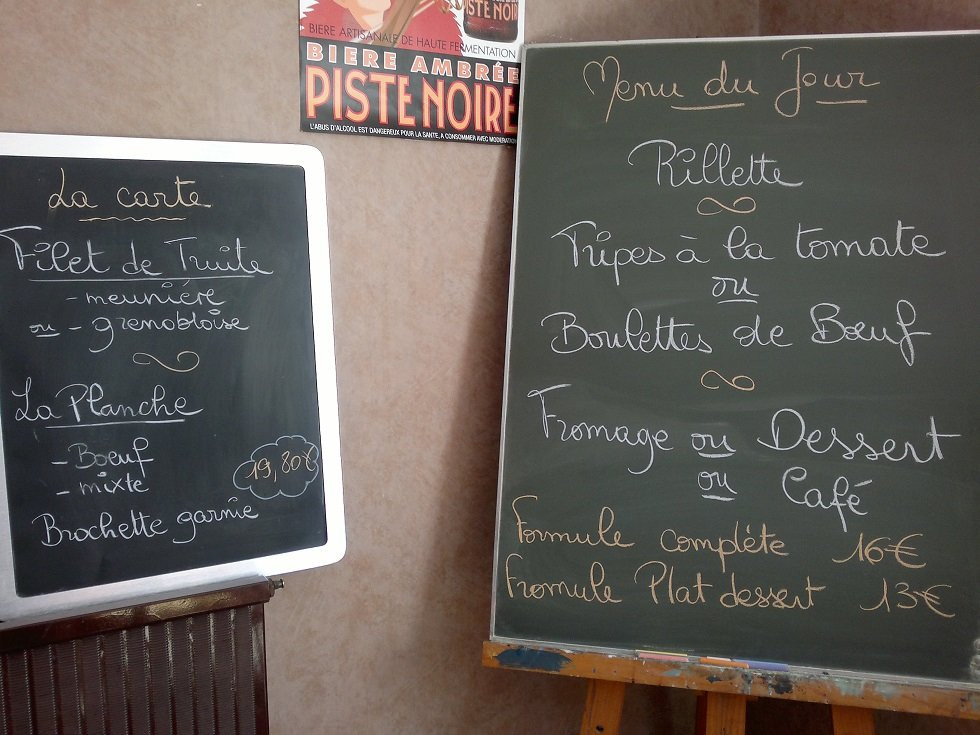 La carte
Filet de Truite
- meunière
ou - grenobloise
La Planche
- Boeuf
- mixte
19,80€
Brochette garnie
BIERE ARTISANALE DE HAUTE FERMENTATION
BIERE AMBRÉE
PISTE NOIRE
L'ABUS D'ALCOOL EST DANGEREUX POUR LA SANTE, A CONSOMMER AVEC MODERATION
PISTE NOIR
Menu du Jour
Rillette
Tripes à la tomate
ou
Boulettes de Bœuf
Fromage ou Dessert
ou Café
Formule complète 16€
Fromule Plat dessert 13€